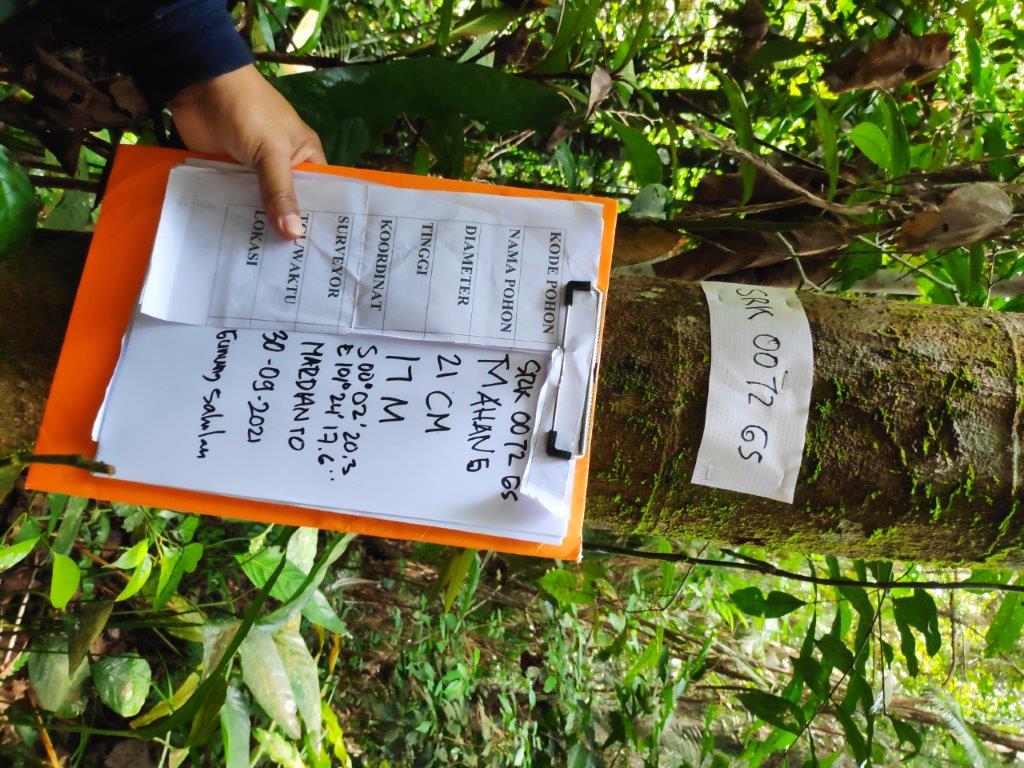 SRK 0072 GS
KODE POHON SRK 0072 GS
NAMA POHON MAHANG
DIAMETER 21 CM
TINGGI 17 M
KOORDINAT S 00° 02' 20.3
E 101° 24' 17.6"
SURVEYOR MARDIANTO
TGL/WAKTU 30-09-2021
LOKASI Gunung Sahilan